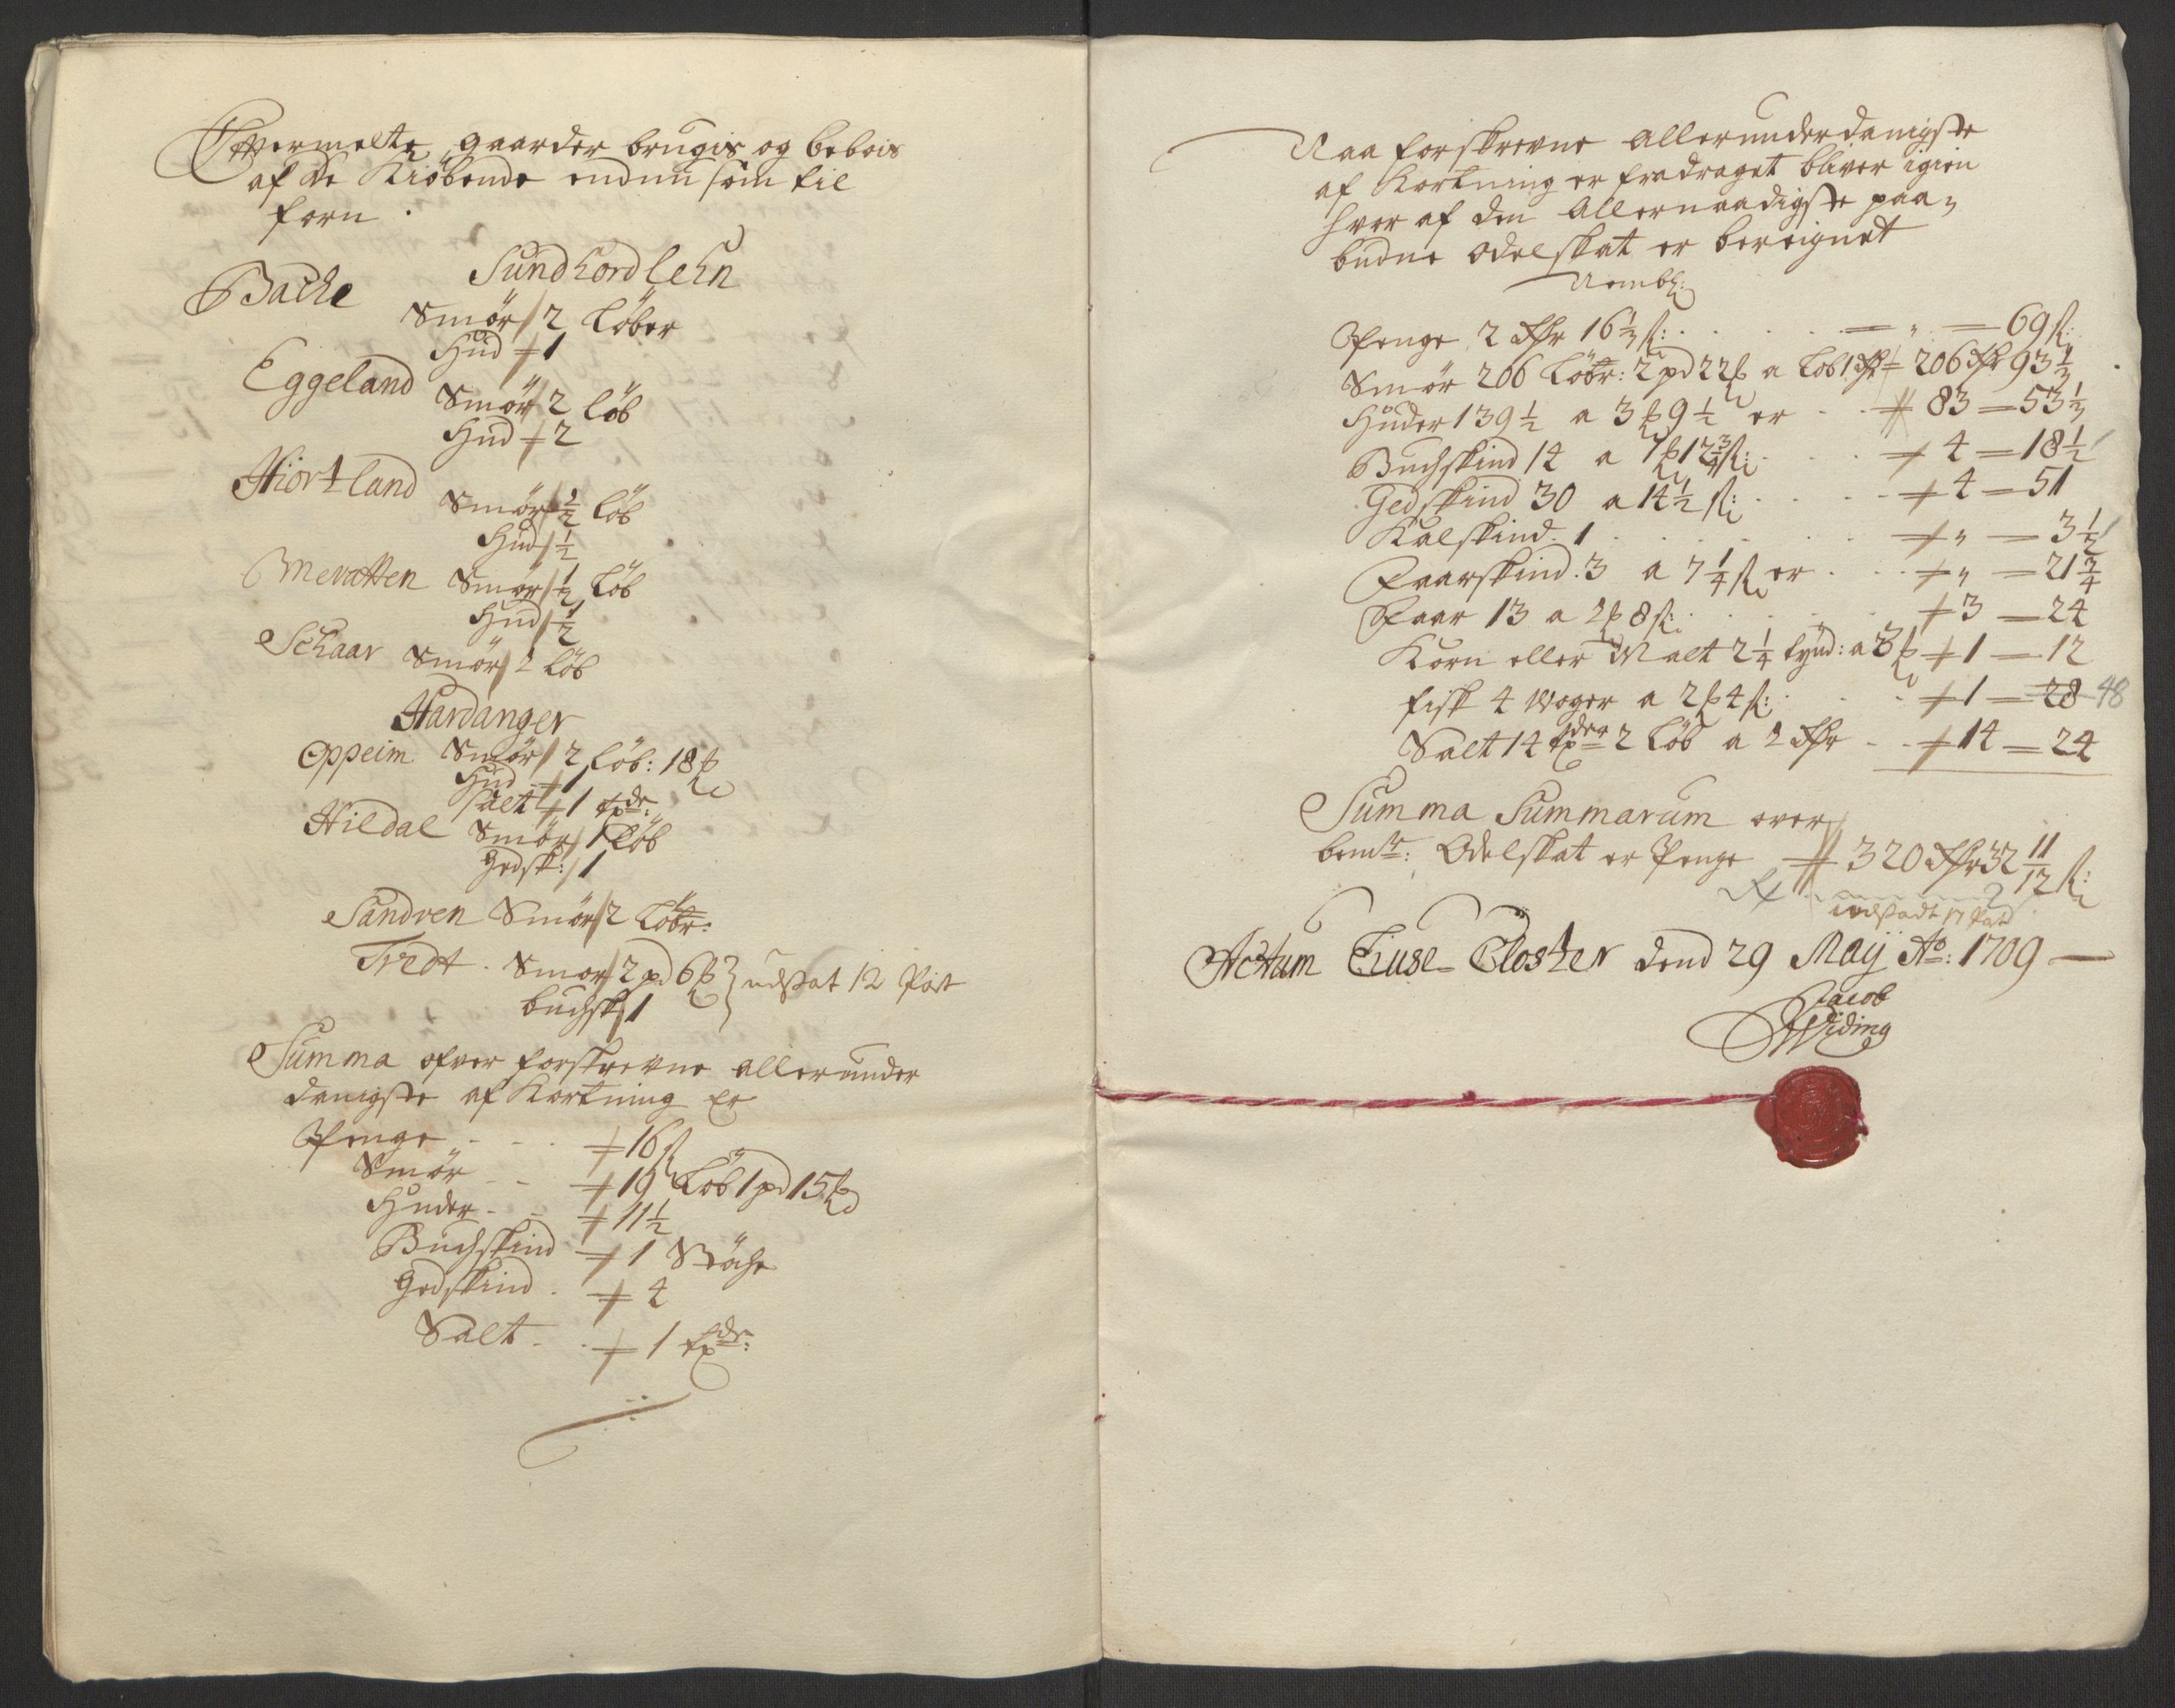 Ofvermelte gaarder brugis og bebois
af de Kiöbende endnu som til
forn.
Sundhordlehn
Bache
Smör 2 Löber
Hud 1
Eggeland
Smör 2 löb
Hud 2
Hiortland
Smör ½ löb
Hud ½
Mevatten Smör ½ Löb
Hud ½
Schaar Smör 2 löb
Hardanger
Oppeim Smör 2 löb: 18 ℔
Hud 1
salt 1 tꝑdr:
Hildal Smör 1 Löb
gedsk: 1
Sandven Smör 2 Löbr:
Tredt . Smör 2 pd 6 ℔ } udsat 12 Post
buchsk 1
Summa ofver forskrevne allerunder
danigste af Kortning er
Penge - - - 16 s
Smör - - 19 Löb 1 pd 15 ℔
Huder - - 11½
Buchskind 1
Gedskind . 4
Salt - . 1 tꝑdr:
Naa forskrevne Allerunderdanigste
af Kortning er fradraget bliver igien
hver af den Allernaadigste paa-
budne Odelskat er bereignet
Nembl:
Penge 2 Rdr 16½ s: . . . . — " — 69 s:
Smör 206 Löbr: 2 pd 22 ℔ a Löb 1 Rdr = 206 Rdr 93½
Huder 139½ a 3 ℔ 9½ er . . 83 — 53½
Buchskind 14 a 1 ℔ 12¾ s: . . . 4 — 18½
Gedskind 30 a 14½ s: . . . . 4 — 51
Kalskind . 1 . . . . . . " — 3½
Faarskind . 3 a 7¼ s er . . . " — 21¾
Faar 13 a 2 ℔ 8 s: . . . . . 3 — 24
Korn eller Malt 2¼ tynd: a 3 ℔ 1 — 12
fisk 4 Woger a 2 ℔ 4 s: . . . 1 — 28 48
Salt 14 tꝑder 2 Löb a 1 Rdr - . . 14 — 24
Summa Summarum over
bemte: Odelskat er Penge 320 Rdr 32 11/12 s:
udsadt 17 Post
Actum Liuse-Closter dend 29 Maij Ao: 1709 —
Jacob
Widing